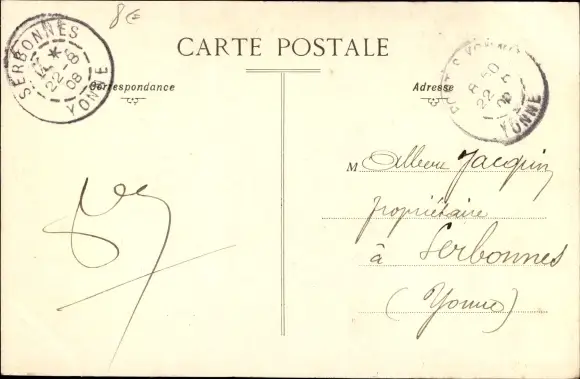 8€
SERBONNES
*
22-5
08
YONNE
CARTE POSTALE
Correspondance
Adresse
PONT-S-YONNE
8-50
22-5
08
YONNE
M Albert Jacquin
propriétaire
à Serbonnes
(Yonne)